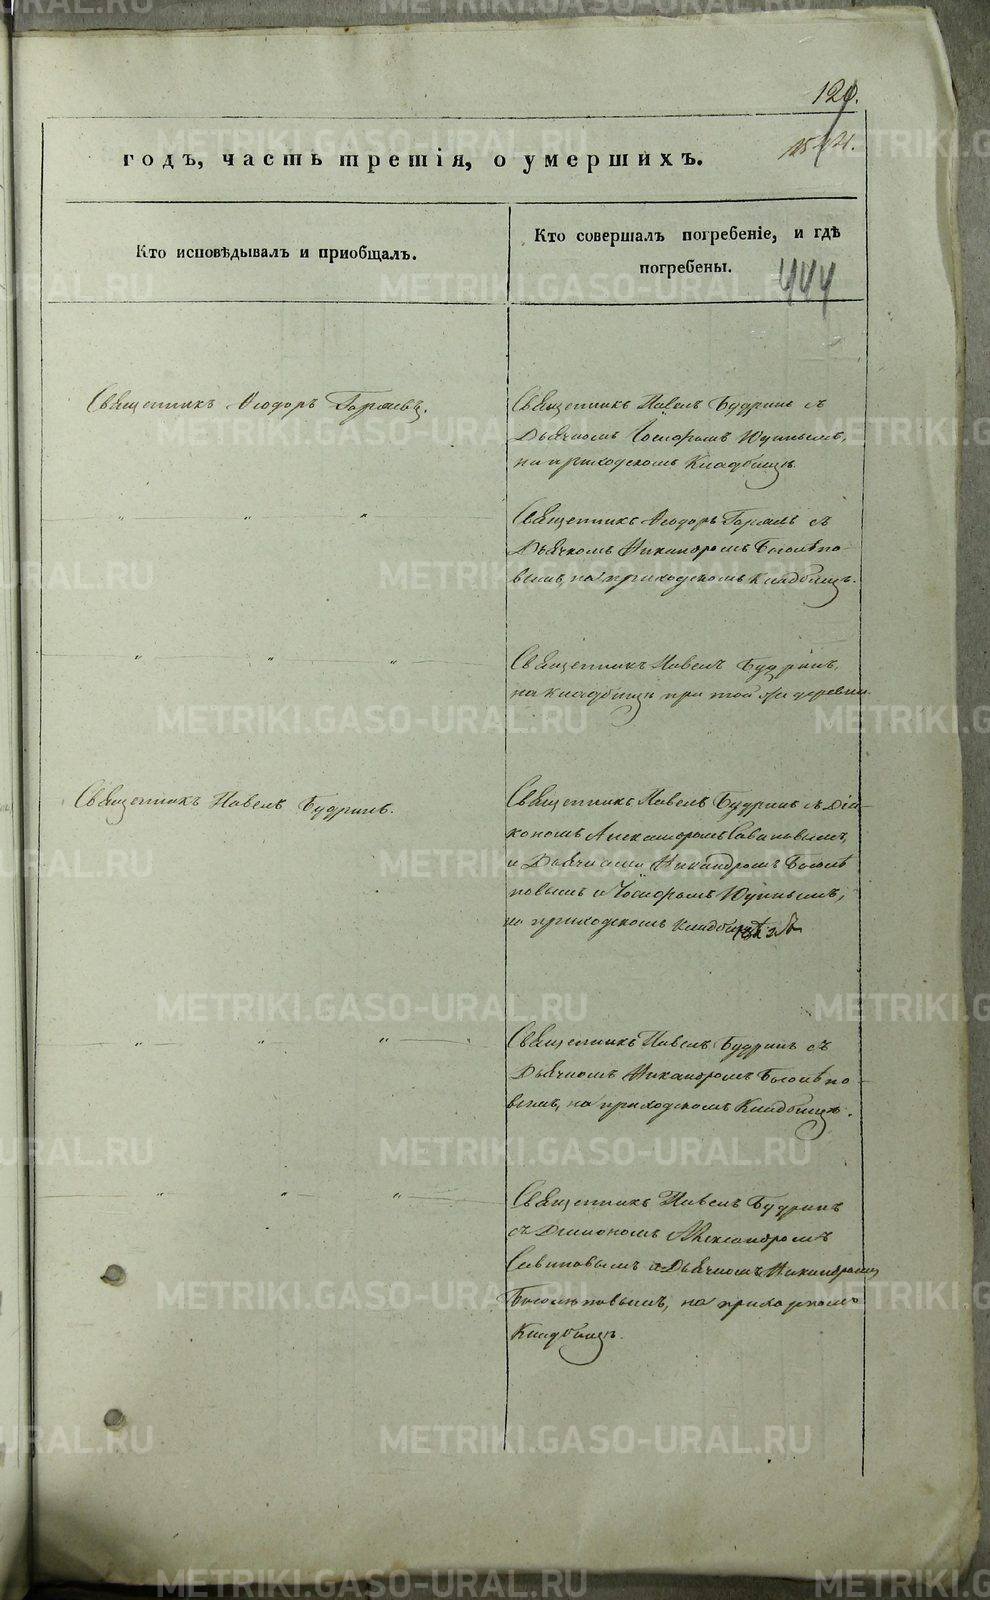 120.
годъ, часть третія, о умершихъ.
Кто исповѣдывалъ и приобщалъ.
Кто совершалъ погребеніе, и гдѣ
погребены.
444
Священникъ Ѳеодоръ
Священникъ Павелъ Будринъ съ
Дьячкомъ
на приходскомъ Кладбищѣ.
" " "
Священникъ Ѳеодоръ съ
Дьячкомъ Никандромъ Боголѣпо-
вымъ, на приходскомъ кладбищѣ.
" " "
Священникъ Павелъ Будринъ,
на кладбищѣ при той же деревни.
Священникъ Павелъ Будринъ.
Священникъ Павелъ Будринъ съ Діа-
кономъ Александромъ Савиновымъ,
и Дьячками Никандромъ Боголѣ
повымъ и
на приходскомъ кладбищѣ
" " "
Священникъ Павелъ Будринъ съ
Дьячкомъ Никандромъ Боголѣпо-
вымъ, на приходскомъ Кладбищѣ.
" " "
Священникъ Павелъ Будринъ
съ Діакономъ Александромъ
Савиновымъ и Дьячкомъ Никандромъ
Боголѣповымъ, на приходскомъ
Кладбищѣ.
METRIKI.GASO-URAL.RU